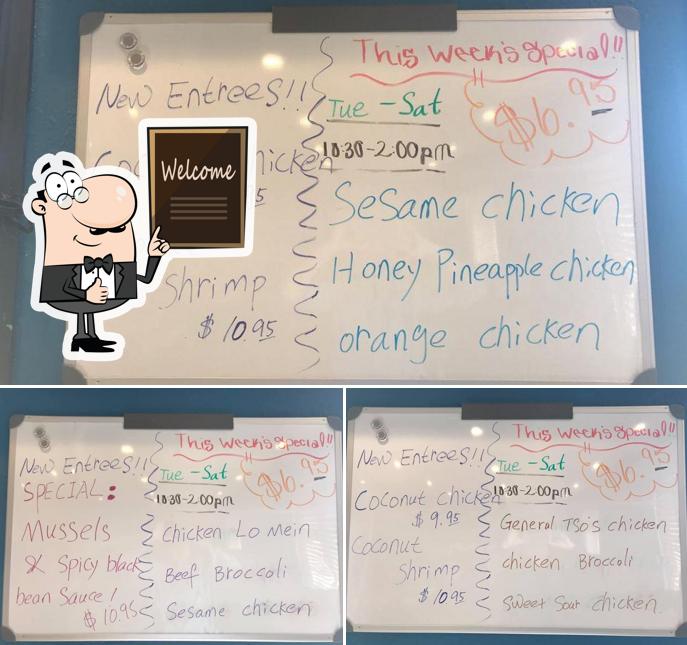 This Week's Special!!
New Entrees!!
$6.95
Tue - Sat
10:30-2:00pm
Sesame chicken
Welcome
Honey Pineapple chicken
Shrimp
$10.95
orange chicken
This Week's Special!!
New Entrees!!
Tue - Sat
$6.95
SPECIAL:
10:30-2:00pm
Mussels
Chicken Lo mein
Spicy black
Beef Broccoli
bean Sauce!
$10.95
Sesame chicken
This Week's Special!!
New Entrees!!
Tue - Sat
$6.95
10:30-2:00pm
Coconut chicken
$9.95
General TSO's chicken
Coconut
Shrimp
chicken Broccoli
$10.95
Sweet Sour chicken